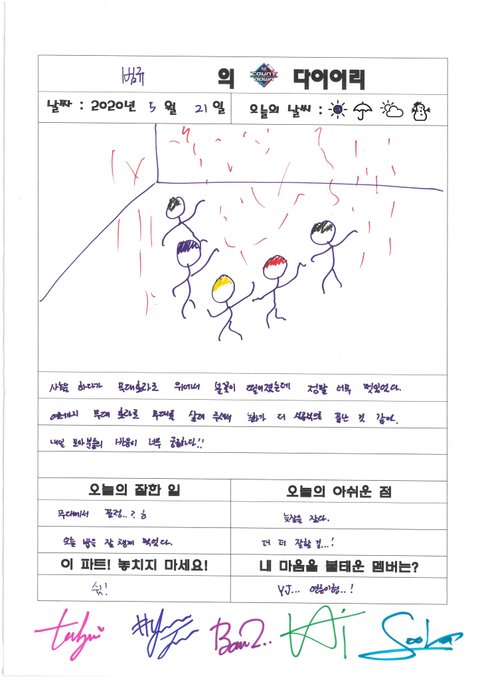 범규 의 M COUNT DOWN 다이어리
날짜 : 2020년 5 월 21 일 오늘의 날씨 :
사녹을 하다가 무대효과로 위에서 불꽃이 떨어졌는데 정말 너무 멋있었다.
무대 효과로 무대를 살려 주셔서 더 성공적으로 끝난 것 같아.
내일 모아분들의 반응이 너무 궁금하다!!
오늘의 잘한 일
무대에서 표정..? ㅎ
오늘 밥을 잘 챙겨 먹었다.
오늘의 아쉬운 점
늦잠을 잤다.
더 더 잘할 걸...!
이 파트! 놓치지 마세요!
쉿!
내 마음을 불태운 멤버는?
YJ... 연준이형..!